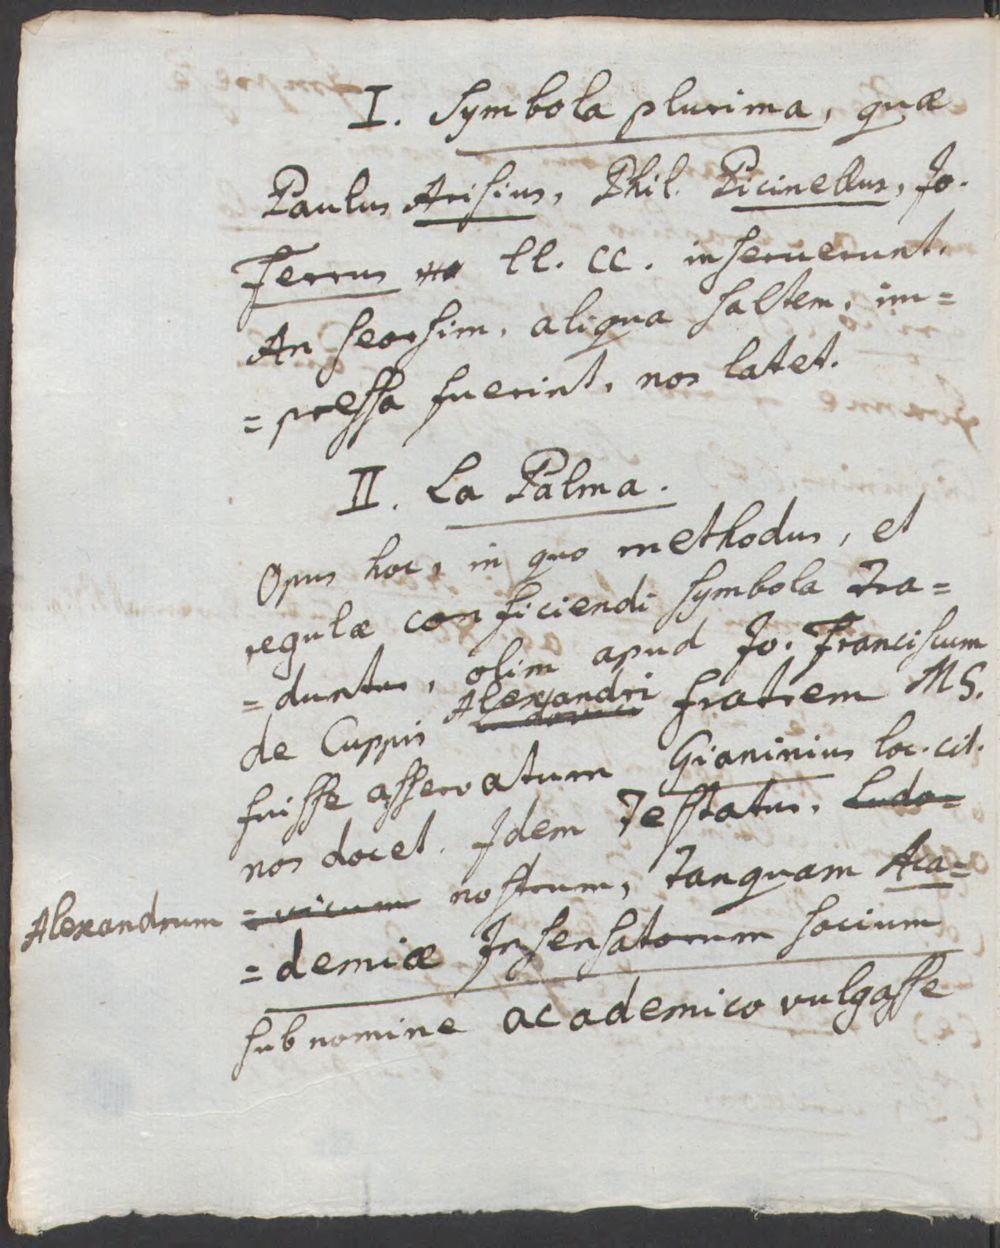 I. Symbola plurima, quæ
Paulus Arisius, Phil. Picinellus, Jo.
Ferrus ll. cc. inseruerunt.
An seorsim, aliqua saltem, im=
=pressa fuerint, nos latet.
II. La Palma.
Opus hoc, in quo methodus, et
regulæ conficiendi symbola tra=
=duntur, olim apud Jo. Franciscum
de Cuppis Alexandri fratrem MS.
fuisse asservatum Gianinius loc. cit.
nos docet. Idem testatur, Ludo=
Alexandrum =vicum nostrum, tanquam Aca=
=demiæ Insensatorum socium
sub nomine academico vulgasse